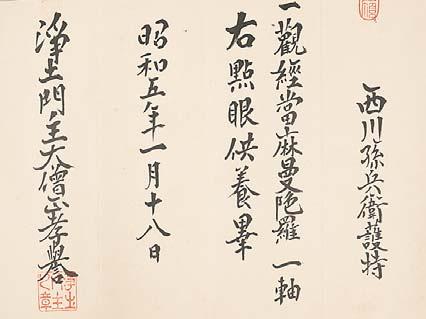 西川孫兵衛護持
一觀經當麻曼陀羅一軸
右點眼供養畢
昭和五年一月十八日
淨土門主大僧正孝譽
淨土門主之章